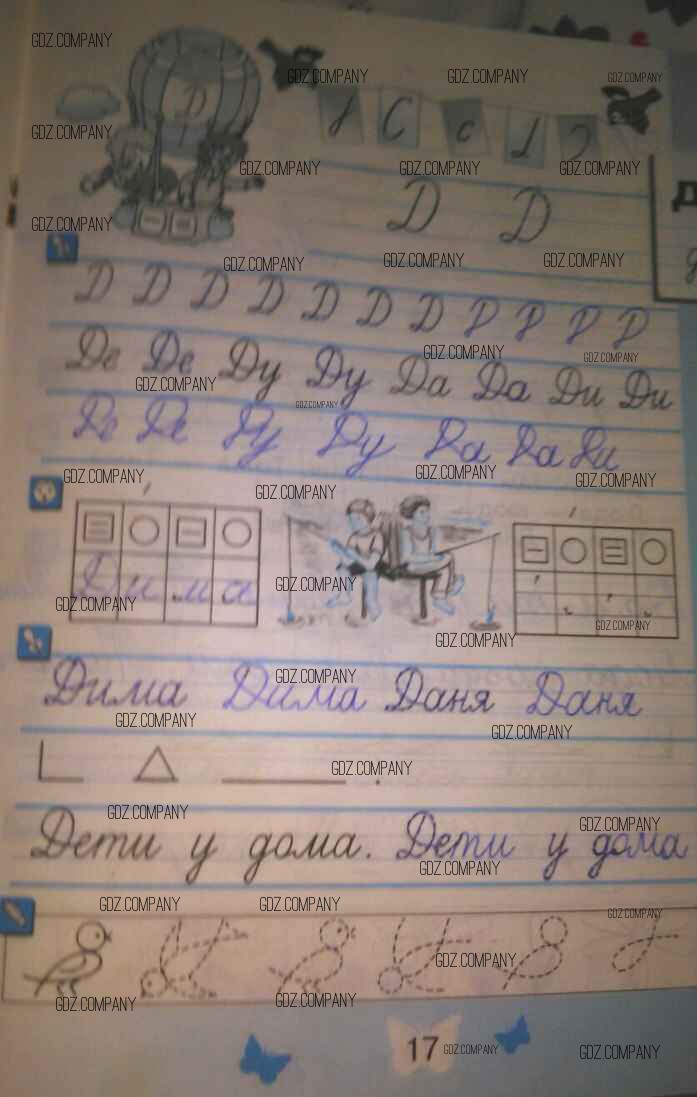 Д
д С с д Э
Д Д
Д Д Д Д Д Д Д Д Д Д Д
Де Де Ду Ду Да Да Ди Ди
Де Де Ду Ду Да Да Ди
Дима
Дима Дима Даня Даня
Дети у дома. Дети у дома
17
GDZ.COMPANY